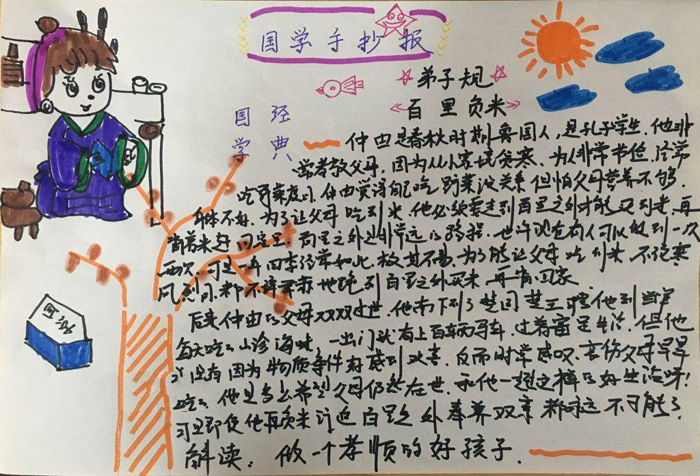 国学手抄报
弟子规
百里负米
国学
经典
仲由是春秋时期鲁国人,是孔子学生,他非
常孝敬父母。因为从小家境贫寒,为人非常节俭,经常
吃野菜度日,仲由觉得自己吃野菜没关系但怕父母营养不够,
身体不好,为了让父母吃到米,他必须要走到百里之外才能买到米,再
背着米赶回家里。百里之外是非常远的路程,也许现在有人可以做到一次
两次,可是一年四季经常如此极其不易,为了能让父母吃到米,不论寒
风烈日,都不辞辛劳地跑到百里之外买米,再背回家。
后来仲由的父母双双过世,他南下到了楚国楚王聘他到当官
每天吃的山珍海味,一出门就有上百辆马车,过着富足生活。但他
没有因为物质条件好感到欢喜,反而时常感叹,哀伤父母早早
他是多么希望父母仍然在世,和他一起过这样的好生活呀!
可是即使他再负米到百里之外奉养双亲都永远不可能了。
解读:做一个孝顺的好孩子.